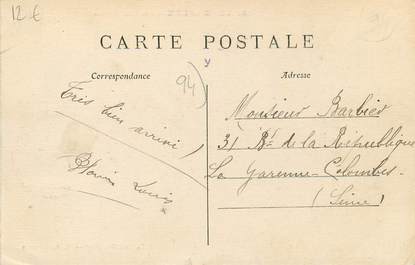 12 €
CARTE POSTALE
Correspondance
Adresse
94)
Très bien arrivé
Louis
Monsieur Barbier
31 Bd de la République
La Garenne-Colombes
(Seine)